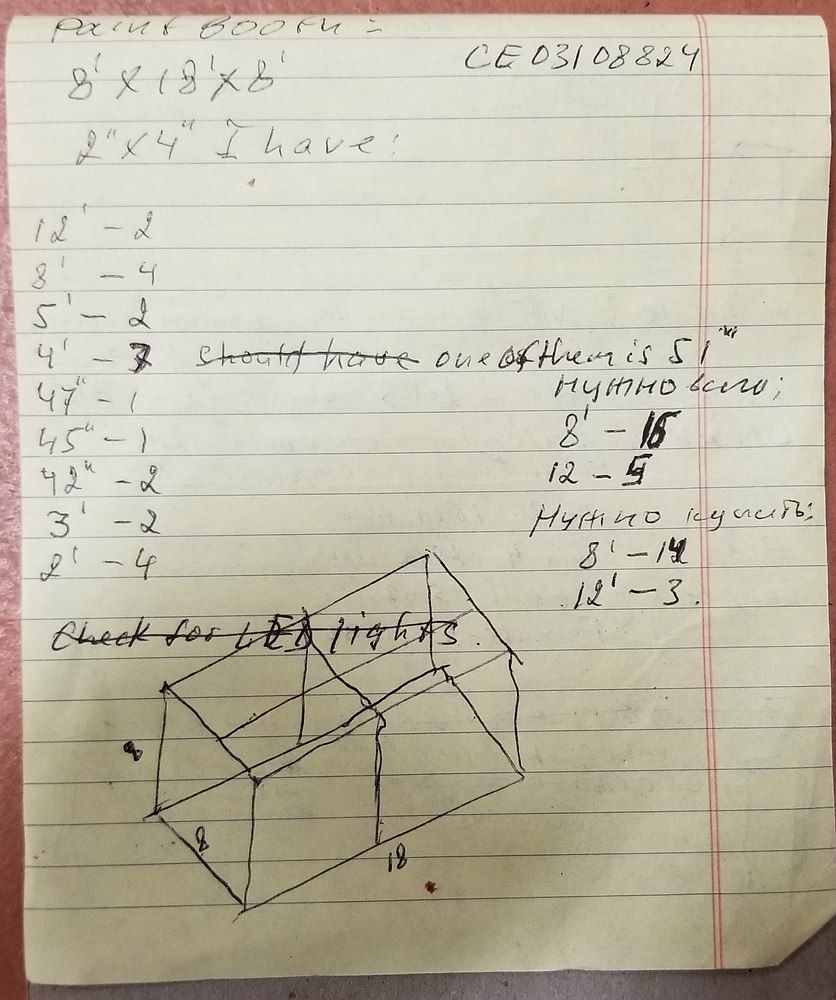 Paint Booth:
CE03108824
8' x 18' x 8'
2" x 4" I have:
12' - 2
8' - 4
5' - 2
4' - 7 should have one of them is 51"
Нужно всего:
47" - 1
8' - 16
45" - 1
12 - 5
42" - 2
Нужно купить:
3' - 2
8' - 12
2' - 4
12' - 3.
Check for LED lights.
8
8
18